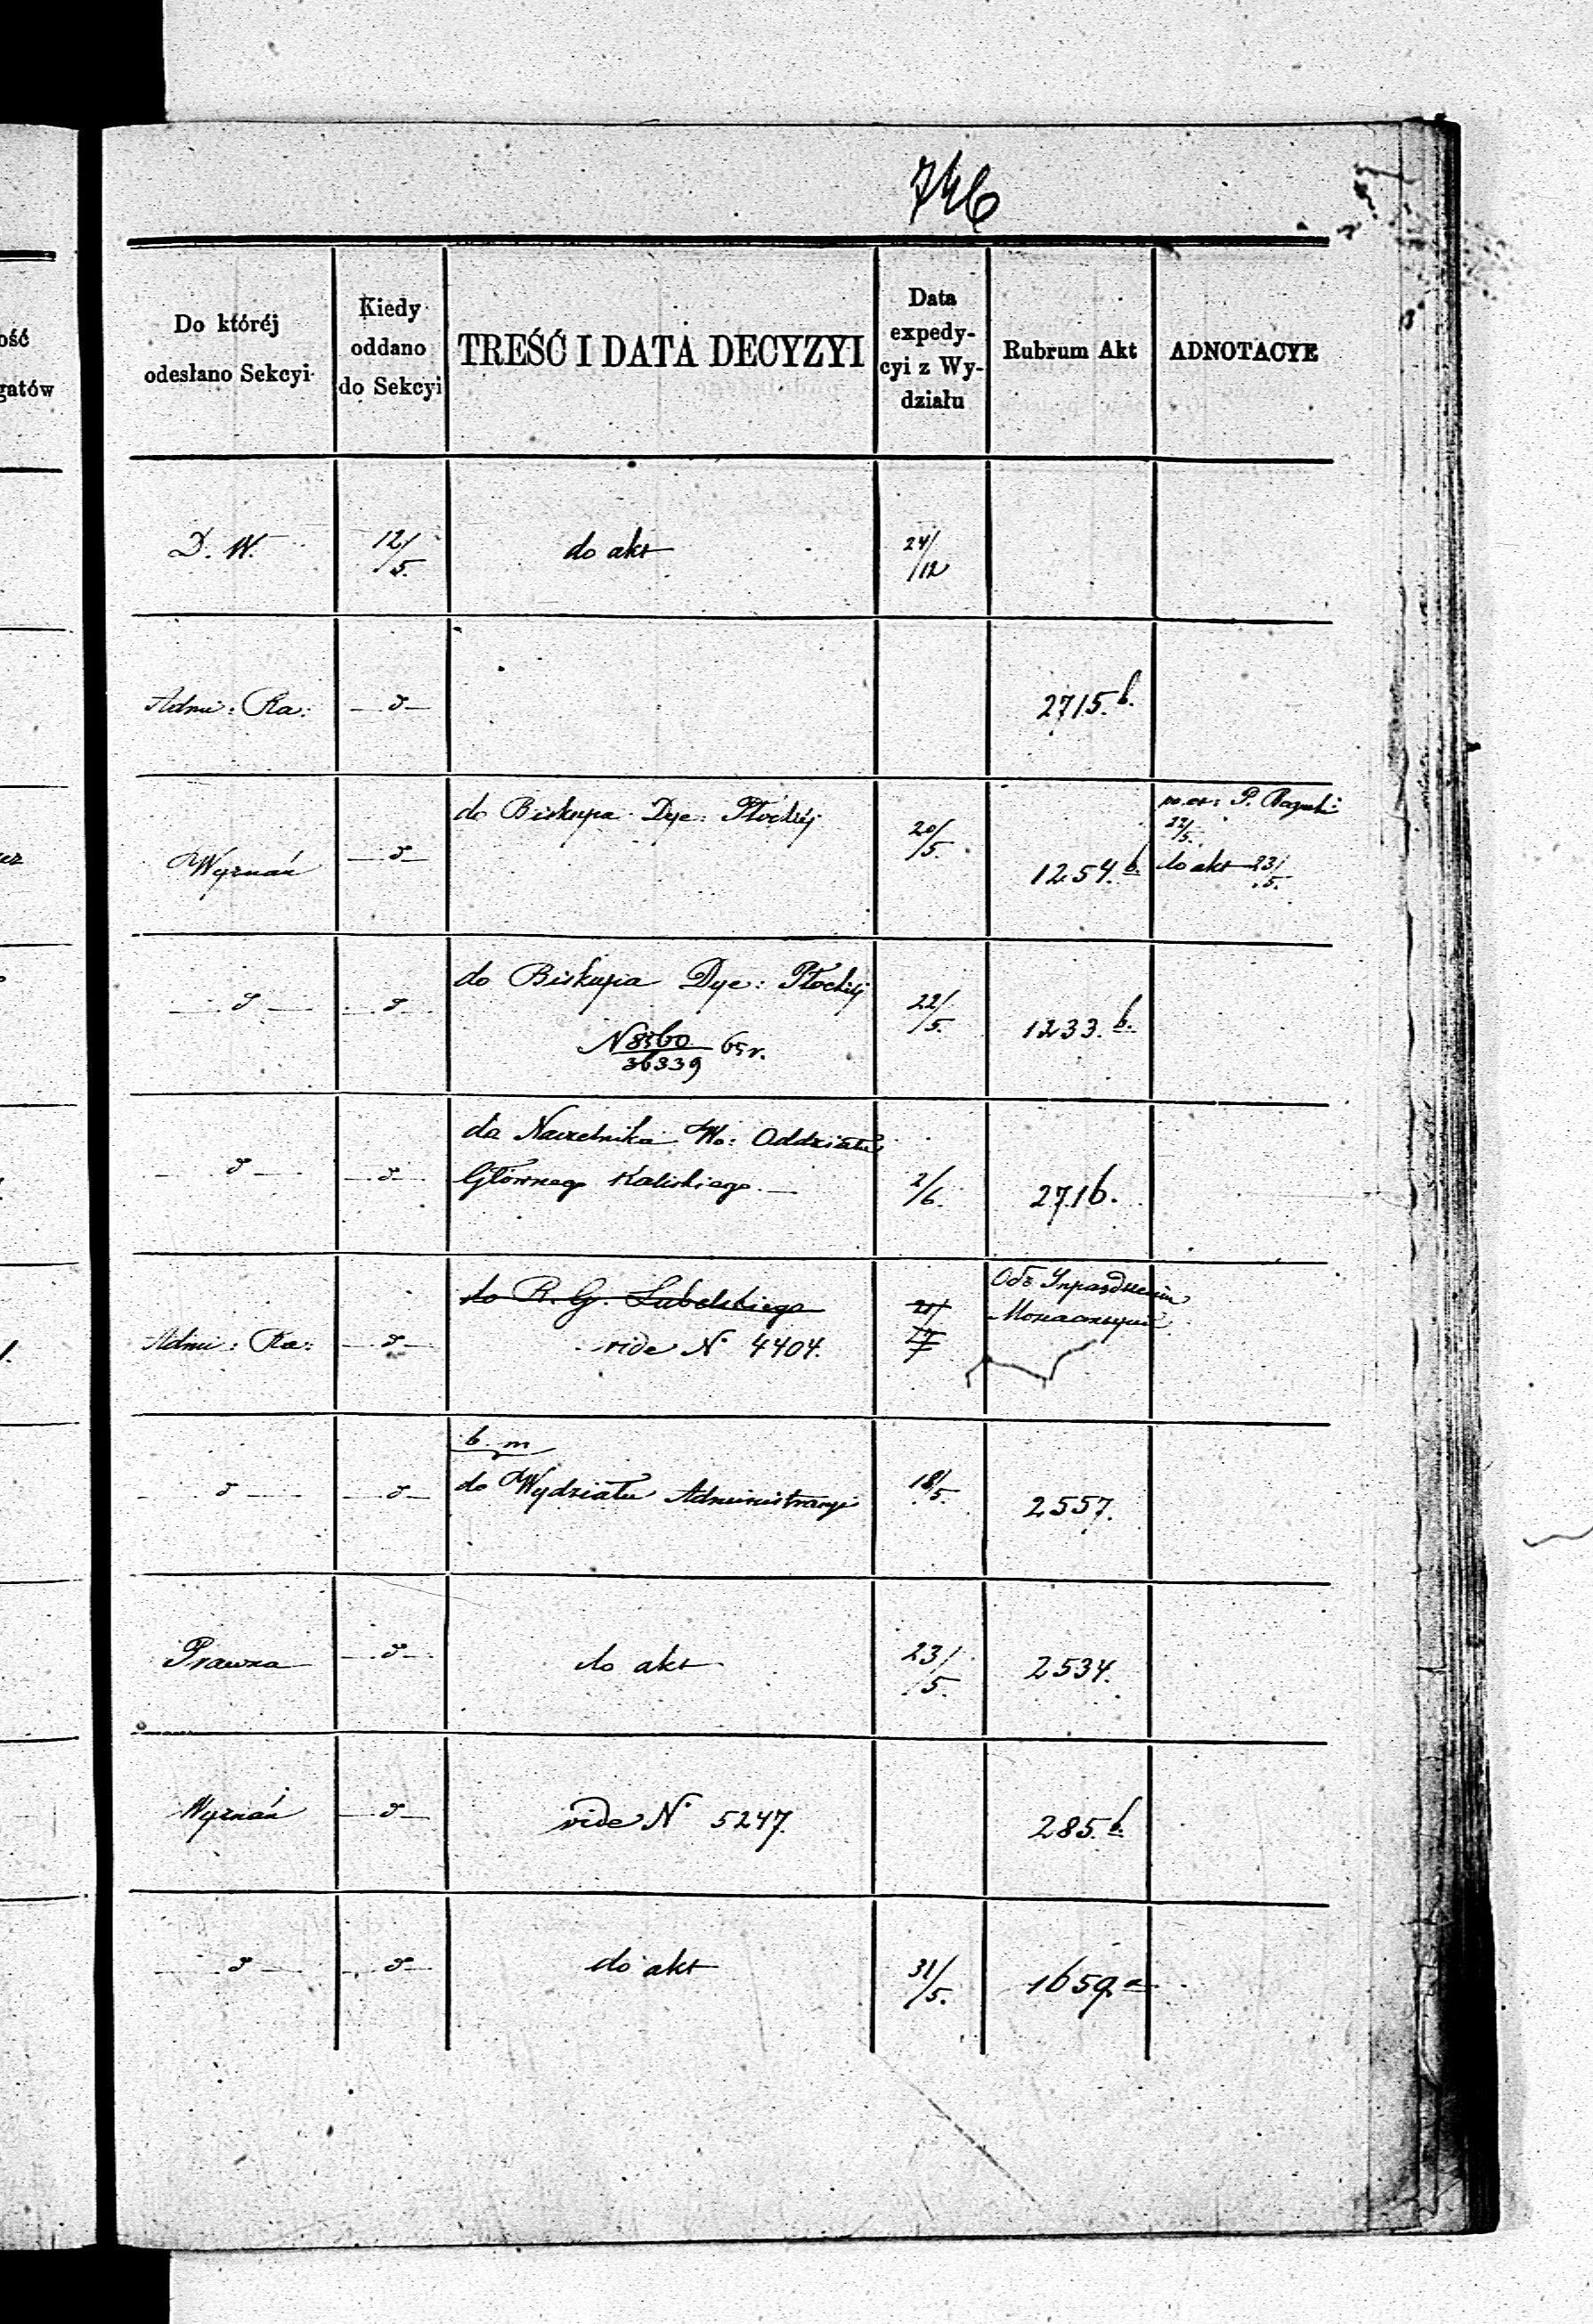 746
ość
gatów
Do któréj
odesłano Sekcyi
Kiedy
oddano
do Sekcyi
TREŚĆ I DATA DECYZYI
Data
expedy-
cyi z Wy-
działu
Rubrum Akt
ADNOTACYE
D. W. 12/5. do akt 24/12
Admi: Ra: —d— 2715.b.
do Biskupa Dye: Płockiéj
Wyznań —d— 20/5. 1254.b.
22/5.
do akt 23/5.
do Biskupa Dye: Płockiéj
—d— —d— 22/5. 1233.b.
N 8360/36339 65 r.
do Naczelnika Wo: Oddziału
Głównego Kaliskiego —
—d— —d— 2/6. 2716.
do R. G. Lubelskiego
Объ Упраздненіи
Admi: Ra: —d— vide N° 4404.
b. m
do Wydziału Administracyi
—d— —d— 18/5. 2557.
Prawna —d— do akt 23/5. 2534.
Wyznań —d— vide N° 5247. 285.b.
—d— —d— do akt 31/5. 1659.a